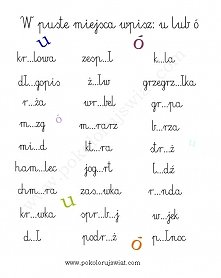 W puste miejsca wpisz: u lub ó
u ó
kr...lowa zesp...ł k...la
dł...gopis ż...łw grzegrz...łka
r...ża wr...bel gr...pa
m...zg ó m...rarz b...rza
mi...d kt...ra str...ż
ham...lec jog...rt l...dź
chm...ra zas...wka r...nda
u
kr...wka spr...b...j w...jek
d...ł podr...ż ó p...łnoc
www.pokolorujswiat.com